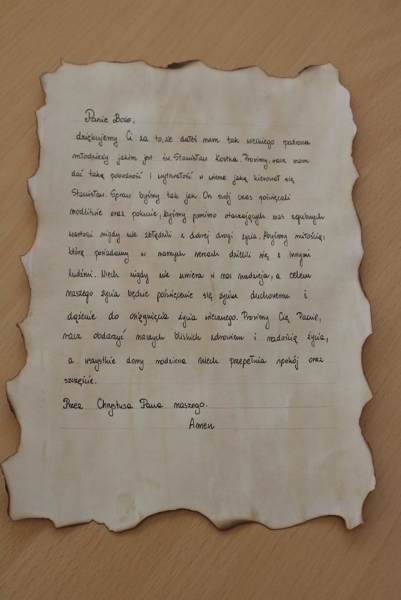 Panie Boże,
dziękujemy Ci za to, że dałeś nam tak wielkiego patrona
młodzieży jakim jest św. Stanisław Kostka. Prosimy, racz nam
dać taką pewność i wytrwałość w wierze jaką kierował się
Stanisław. Spraw byśmy tak jak On swój czas poświęcali
modlitwie oraz pokucie, byśmy pomimo otaczających nas
wartości nigdy nie zbłądzili z dobrej drogi życia. Abyśmy miłością,
którą posiadamy w naszych sercach dzielili się z innymi
ludźmi. Niech nigdy nie umiera w nas nadzieja, a celem
naszego życia będzie poświęcenie się życiu duchowemu i
dążenie do osiągnięcia życia wiecznego. Prosimy Cię Panie,
racz obdarzyć naszych bliskich zdrowiem i radością życia,
a wszystkie domy rodzinne niech przepełnia spokój oraz
szczęście.
Przez Chrystusa Pana naszego.
Amen